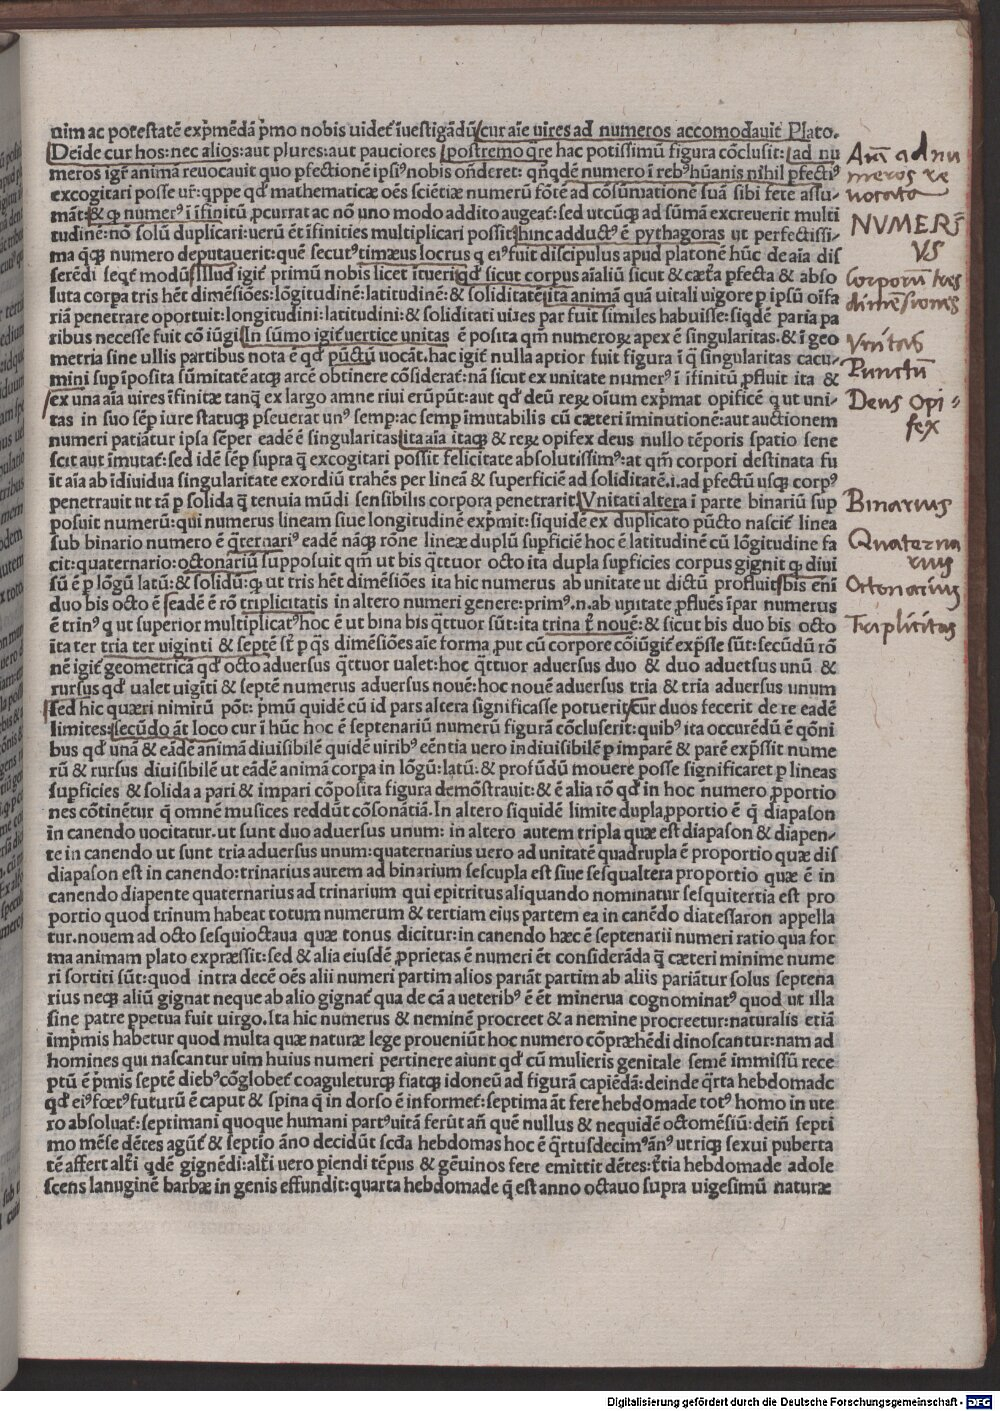 nim ac potestatē exp̄mēdā p̄mo nobis uidet̄ īuestigādū cur aīe uires ad numeros accomodauit Plato.
Deīde cur hos: nec alios: aut plures: aut pauciores postremo q̄re hac potissimū figura cōclusit: ad nu
meros igit̄ animā reuocauit quo pfectionē ipsiꝰ nobis oñderet: qñqdē numero ī rebꝰ hūanis nihil pfectiꝰ
excogitari posse ur̄: qppe qd̄ mathematicæ oēs sciētiæ numerū fōtē ad cōsūmationē suā sibi fere assu-
māt: & ꝙ numerꝰ ī īfinitū ꝓcurrat ac nō uno modo addito augeat̄: sed utcūqꝫ ad sūmā excreuerit multi
tudinē: nō solū duplicari: uerū ēt īfinities multiplicari possit: hinc adductꝰ ē pythagoras ut perfectissi-
ma q̄qꝫ numero deputauerit: quē secutꝰ timæus locrus q eiꝰ fuit discipulus apud platonē hūc de aīa dis
serēdi seqt̄ modū Illud igit̄ primū nobis licet ītueri qd̄ sicut corpus aīaliū sicut & cæt̄a pfecta & abso
luta corpa tris hēt dimēsiōes: lōgitudinē: latitudinē: & soliditatē ita animā quā uitali uigore p ipsū oīfa
riā penetrare oportuit: longitudini: latitudini: & soliditati uires par fuit similes habuisse: siqdē paria pa
ribus necesse fuit cō iūgi In sūmo igit̄ uertice unitas ē posita qm̄ numeroꝝ apex ē singularitas. & ī geo
metria sine ullis partibus nota ē qd̄ pūctū uocāt. hac igit̄ nulla aptior fuit figura ī q̄ singularitas cacu-
mini sup īposita sūmitatē atqꝫ arcē obtinere cōsiderat̄: nā sicut ex unitate numerꝰ ī īfinitū ꝓfluit ita &
ex una aīa uires īfinitæ tanq̄ ex largo amne riui erūpūt: aut qd̄ deū reꝝ oīum exp̄mat opificē q ut uni-
tas in suo sēp iure statuqꝫ pseuerat unꝰ semp: ac semp īmutabilis cū cæteri īminutionē: aut auctionem
numeri patiātur ipsa sēper eadē ē singularitas ita aīa itaqꝫ & reꝝ opifex deus nullo tēporis spatio sene
scit aut īmutat̄: sed idē sēp supra q̄ excogitari possit felicitate absolutissimꝰ: at qm̄ corpori destinata fu
it aīa ab īdiuidua singularitate exordiū trahēs per lineā & superficiē ad soliditatē. i. ad pfectū usqꝫ corpꝰ
penetrauit ut tā p solida q̄ tenuia mūdi sensibilis corpora penetrarit. Vnitati altera ī parte binariū sup
posuit numerū: qui numerus lineam siue longitudinē exp̄mit: siquidē ex duplicato pūcto nascit̄ linea
sub binario numero ē q̄ternariꝰ eadē nāqꝫ rōne lineæ duplū supficiē hoc ē latitudinē cū lōgitudine fa
cit: quaternario: octonariū supposuit qm̄ ut bis q̄ttuor octo ita dupla supficies corpus gignit ꝙ diui
sū ē p lōgū latū: & solidū: ꝙ ut tris hēt dimēsiōes ita hic numerus ab unitate ut dictū profluit bis eni
duo bis octo ē eadē ē rō triplicitatis in altero numeri genere: primꝰ .n. ab unitate ꝓfluēs īpar numerus
ē trinꝰ q ut superior multiplicatꝰ hoc ē ut bina bis q̄ttuor sūt: ita trina t̄ nouē: & sicut bis duo bis octo
ita ter tria ter uiginti & septē st̄ p q̄s dimēsiōes aīe forma ꝓut cū corpore cōiūgit̄ exp̄sse sūt: secūdū rō
nē igit̄ geometricā qd̄ octo aduersus q̄ttuor ualet: hoc q̄ttuor aduersus duo & duo aduetsus unū &
rursus qd̄ ualet uigīti & septē numerus aduersus nouē: hoc nouē aduersus tria & tria aduersus unum
Sed hic quæri nimirū pōt: p̄mū quidē cū id pars altera significasse potuerit cur duos fecerit de re eadē
limites: secūdo āt loco cur ī hūc hoc ē septenariū numerū figurā cōcluserit: quibꝰ ita occurēdū ē qōni
bus qd̄ unā & eādē animā diuisibilē quidē uiribꝰ eēntia uero indiuisibilē p imparē & parē exp̄ssit nume
rū & rursus diuisibilē ut eādē animā corpa in lōgū: latū: & profūdū mouere posse significaret p lineas
supficies & solida a pari & impari cōposita figura demōstrauit: & ē alia rō qd̄ in hoc numero ꝓportio
nes cōtinētur q̄ omnē musices reddūt cōsonātiā. In altero siquidē limite dupla ꝓportio ē q̄ diapason
in canendo uocitatur. ut sunt duo aduersus unum: in altero autem tripla quæ est diapason & diapen-
te in canendo ut sunt tria aduersus unum: quaternarius uero ad unitatē quadrupla ē proportio quæ dis
diapason est in canendo: trinarius autem ad binarium sescupla est siue sesqualtera proportio quæ ē in
canendo diapente quaternarius ad trinarium qui epitritus aliquando nominatur sesquitertia est pro
portio quod trinum habeat totum numerum & tertiam eius partem ea in canēdo diatessaron appella
tur. nouem ad octo sesquioctaua quæ tonus dicitur: in canendo hæc ē septenarii numeri ratio qua for
ma animam plato expræssit: sed & alia eiusdē ꝓprietas ē numeri ēt considerāda q̄ cæteri minime nume
ri sortiti sūt: quod intra decē oēs alii numeri partim alios pariāt partim ab aliis pariātur solus septena
rius neqꝫ aliū gignat neque ab alio gignat̄ qua de cā a ueteribꝰ ē ēt minerua cognominatꝰ quod ut illa
sine patre ppetua fuit uirgo. Ita hic numerus & neminē procreet & a nemine procreetur: naturalis etiā
imp̄mis habetur quod multa quæ naturæ lege proueniūt hoc numero cōpræhēdi dinoscantur: nam ad
homines qui nascantur uim huius numeri pertinere aiunt qd̄ cū mulieris genitale semē immissū rece
ptū ē p̄mis septē diebꝰ cōglobet̄ coaguleturqꝫ fiatqꝫ idoneū ad figurā capiēdā: deinde q̄rta hebdomade
qd̄ eiꝰ fœtꝰ futurū ē caput & spina q̄ in dorso ē informet̄: septima āt fere hebdomade totꝰ homo in ute
ro absoluat̄: septimani quoque humani partꝰ uitā ferūt añ quē nullus & nequidē octomēsiū: deiñ septi
mo mēse dētes agūt̄ & septio āno decidūt scd̄a hebdomas hoc ē q̄rtusdecimꝰ ānꝰ utriqꝫ sexui puberta
tē affert alt̄i qdē gignēdi: alt̄i uero piendi tēpus & gēuinos fere emittit dētes: t̄tia hebdomade adole
scens lanuginē barbæ in genis effundit: quarta hebdomade q̄ est anno octauo supra uigesimū naturæ
Aīa ad nu
meros re
uocata
NVMERꝰ
VS
Corporū tres
dimēsiones
Vnitas
Punctū
Deus opi-
fex
Binarius
Quaterna
rius
Octonarius
Triplicitas
Digitalisierung gefördert durch die Deutsche Forschungsgemeinschaft - DFG